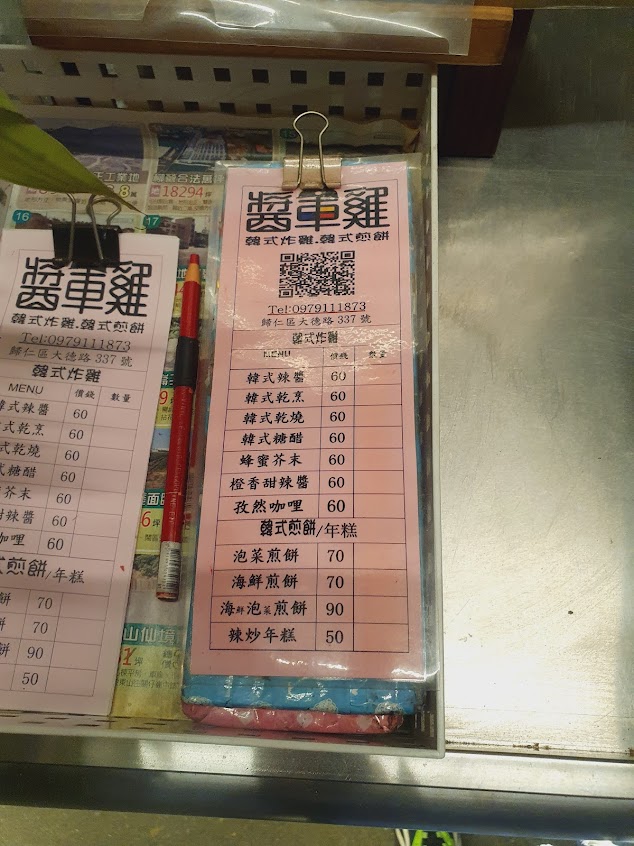 工業地
18294
16
17
醬車雞
韓式炸雞.韓式煎餅
Tel:0979111873
歸仁區大德路 337 號
韓式炸雞
MENU 價錢 數量
韓式辣醬 60
韓式乾烹 60
韓式乾燒 60
韓式糖醋 60
蜂蜜芥末 60
橙香甜辣醬 60
孜然咖哩 60
韓式煎餅/年糕
泡菜煎餅 70
海鮮煎餅 70
海鮮泡菜煎餅 90
辣炒年糕 50
醬車雞
韓式炸雞.韓式煎餅
Tel:0979111873
歸仁區大德路 337 號
韓式炸雞
MENU 價錢 數量
式辣醬 60
式乾烹 60
式乾燒 60
式糖醋 60
芥末 60
甜辣醬 60
咖哩 60
煎餅/年糕
餅 70
餅 70
餅 90
50
山仙境